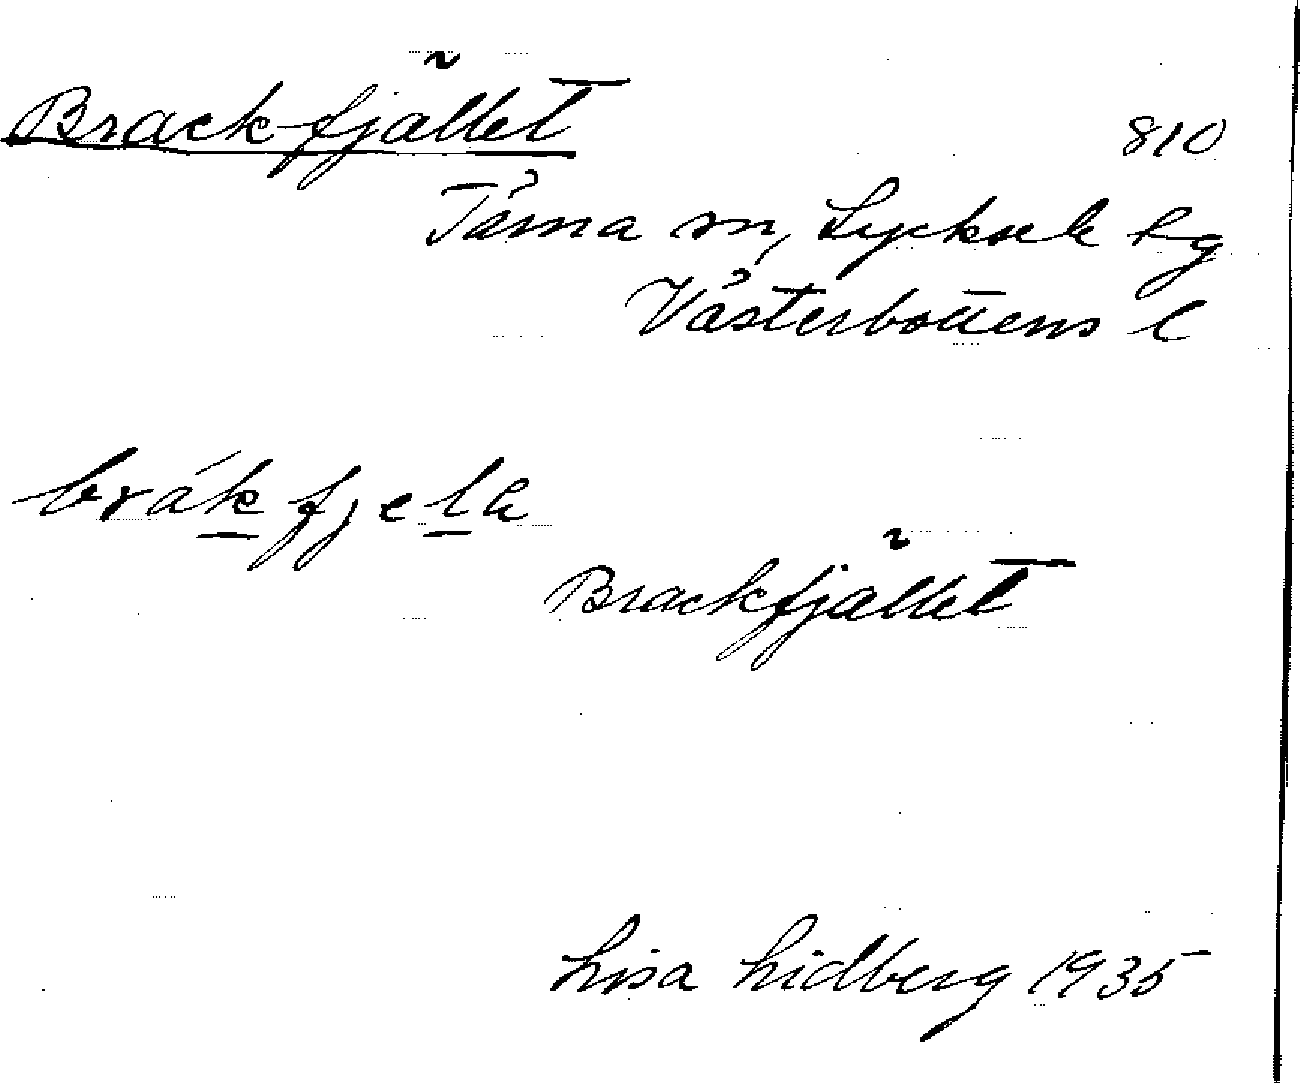 Brackfjället
810
Tärna sn, Lycksele lg
Västerbottens l
brákfjelh
Brackfjället
Lisa Lidberg 1935